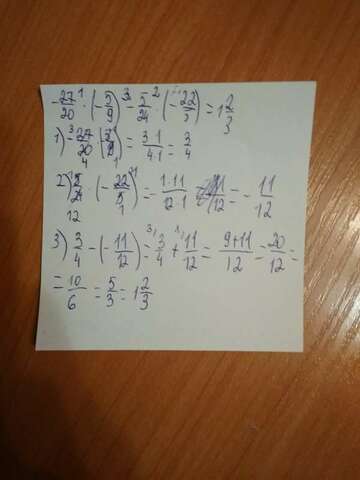 -27/20 ¹· (-5/9) ³- 5/24 ²· (-22/5) = 1 2/3
1) -27/20 · (-5/9) = 3·1/4·1 = 3/4
2) 5/24 · (-22/5) = 1·11/12·1 = -11/12
3) 3/4 - (-11/12) = 3/4 + 11/12 = 9+11/12 = 20/12 =
= 10/6 = 5/3 = 1 2/3